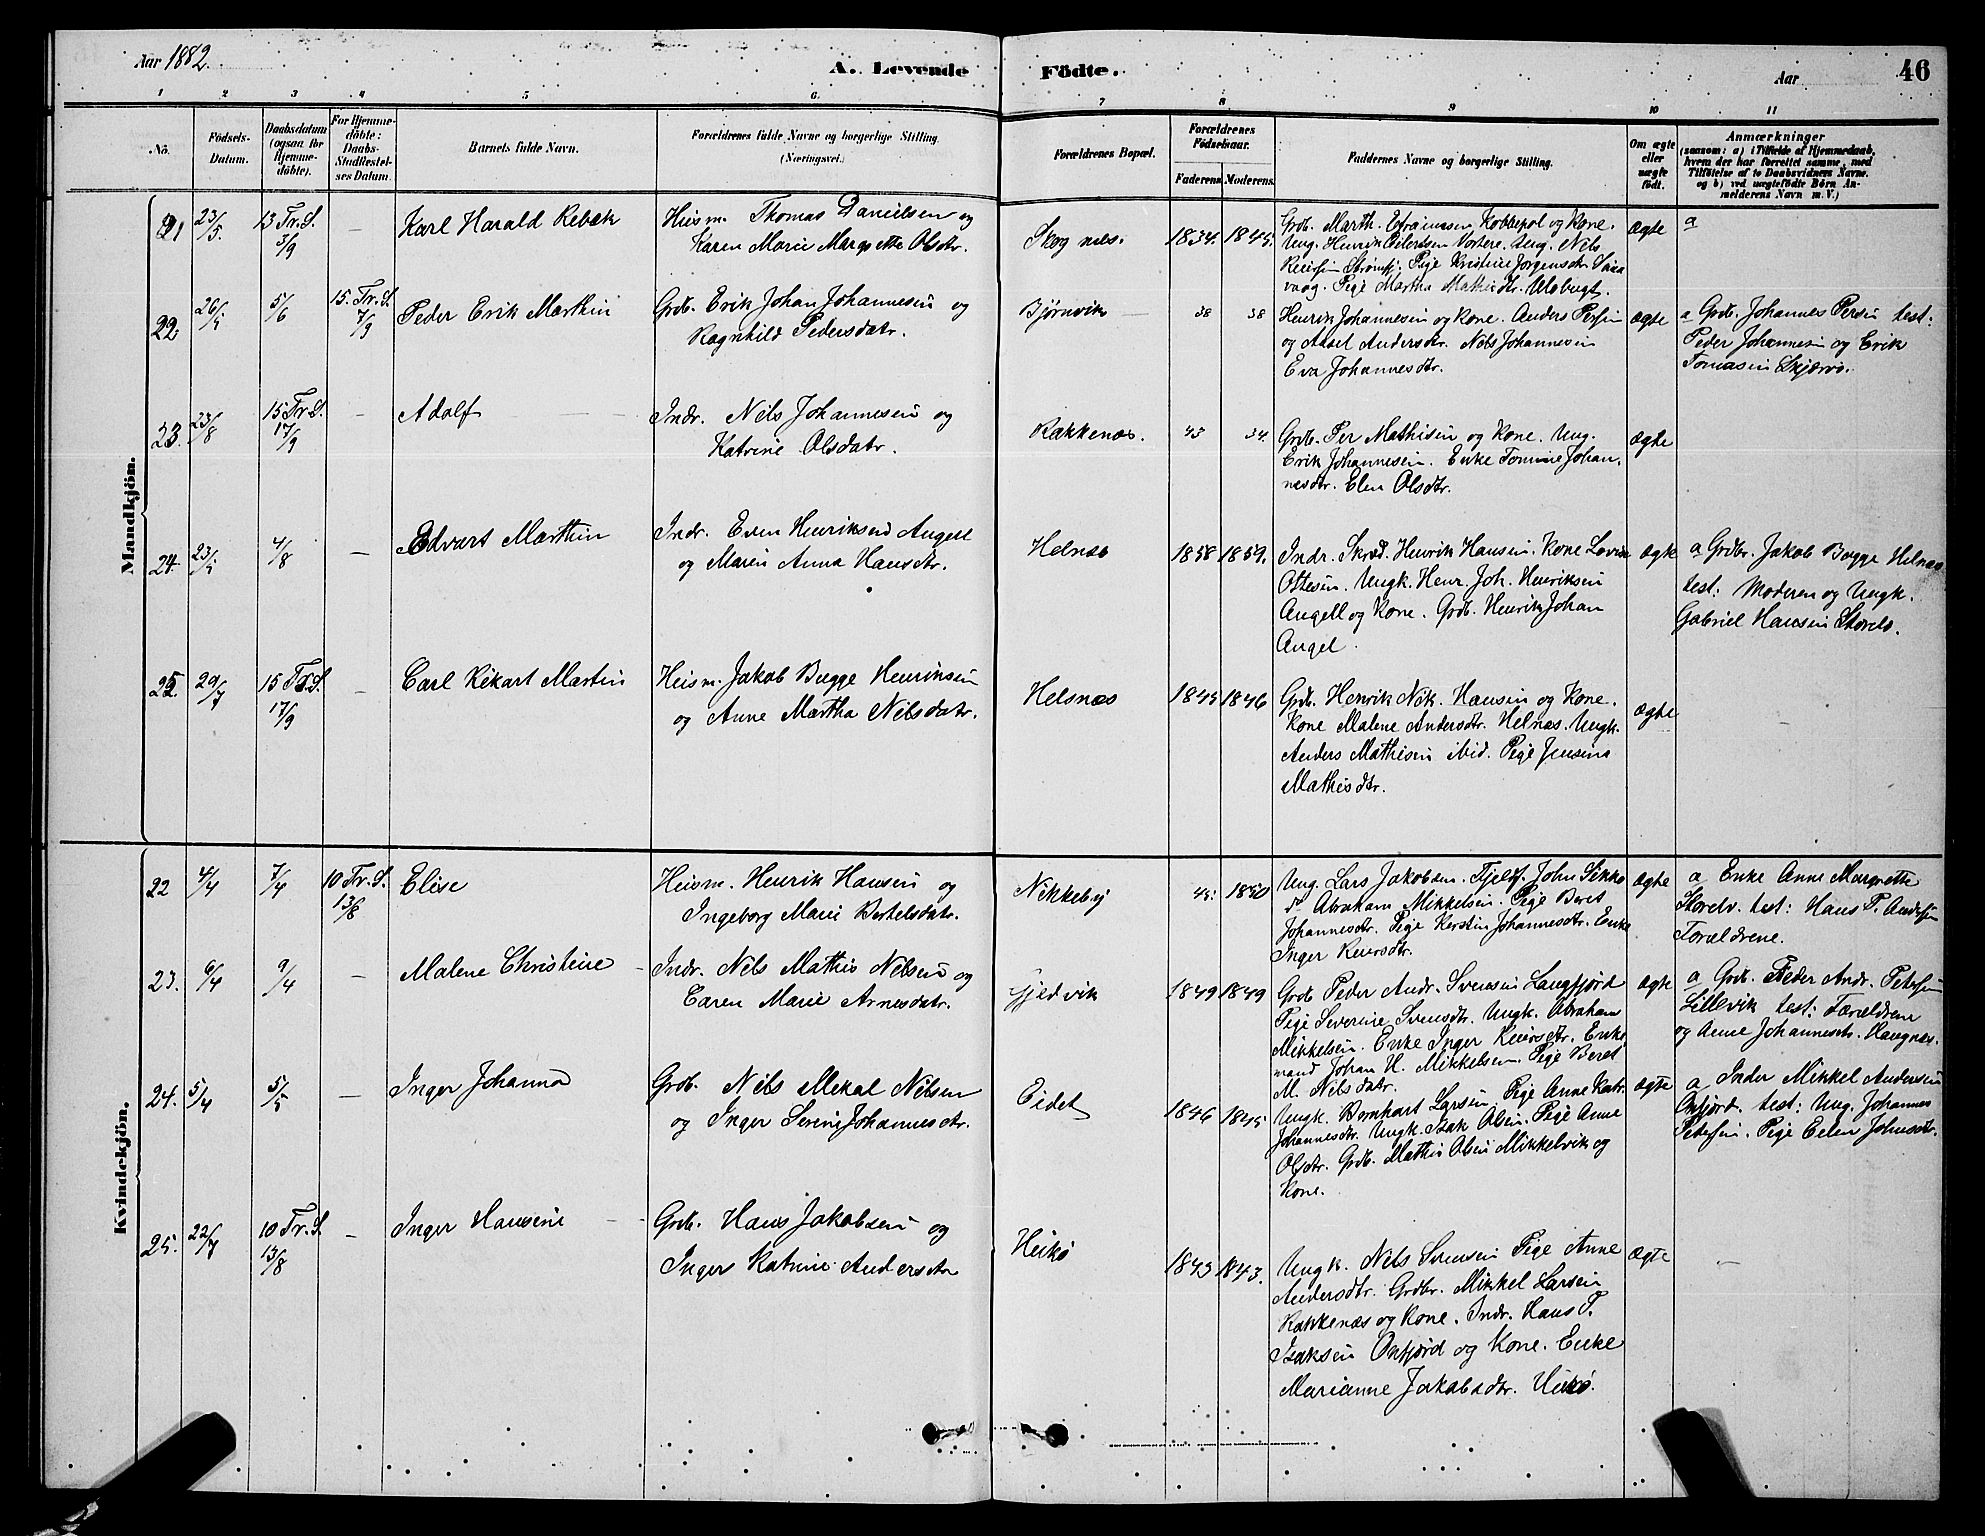 Aar 1882.
A. Levende Födte.
Aar
46
1 2 3 4 5 6. 7 8 9 10 11
No.
Födsels-
Datum.
Daabsdatum
(ogsaa for
Hjemme-
döbte).
For Hjemme-
döbte:
Daabs-
Stadfæstel-
ses Datum.
Barnets fulde Navn.
Forældrenes fulde Navne og borgerlige Stilling.
(Næringsvei.)
Forældrenes Bopæl.
Forældrenes
Födselsaar.
Faderens. Moderens.
Faddernes Navne og borgerlige Stilling.
Om ægte
eller
uægte
födt.
Anmærkninger
(saasom: a) i Tilfælde af Hjemmedaab,
hvem der har forrettet samme, med
Tilföielse af to Daabsvidners Navne.
og b) ved uægtefödte Börn An-
melderens Navn m. V.)
Mandkjön.
21 23/5. 13 Tr. S.
3/9
— Karl Harald Rebæk
Heism. Thomas Danielsen og
Karen Marie Margrette Olsdtr.
Skognes. 1834. 1845.
Grdb. Marth. Efraimsen Kobbepol og Kone.
Ung. Henrik Eilertsen Vortere. Ung. Nils
Reiersen Strømfj. Pige Kristine Jørgensdtr
vaag. Pige Martha Mathisdtr.
ægte a
22. 26/5 5/6 15. Tr. S.
7/9
Peder Erik Marthin
Grdb. Erik Johan Johannesen og
Ragnhild Pedersdatr.
Bjørnvik — 38 38
Henrik Johannesen og Kone. Anders Persen
og Anders dtr. Nils Johannesen
Eva Johannesdtr.
ægte
a Grdb. Johannes Persen test:
Peder Johannesen og Erik
Tomasen Skjærvø.
23. 23/8 15 Tr. S.
17/9
— Adolf
Indr. Nils Johannesen og
Katrine Olsdatr.
Rakkenæs. 43 34.
Grdb. Per Mathisen og Kone. Ung.
Erik Johannesen. Enke Tomine Johan
nesdtr. Elen Olsdtr.
ægte
24. 23/5 4/8 — Edvart Marthin
Indr. Even Henriksen Angell
og Maren Anna Hansdtr.
Helnæs 1858 1859.
Indr. Skræd. Henrik Hansen. Kone Lovise
Ottesen. Ungk. Henr. Joh. Henriksen
Angell og Kone. Grdb. Henrik Johan
Angel.
ægte
a Grdbr. Jakob Bugge Helnæs
test: Moderen og Ungk.
Gabriel Hansen Storels.
25. 29/7 15 Tr. S.
17/9
— Carl Rikart Martin
Heism. Jakob Bugge Henriksen
og Anne Martha Nilsdatr.
Helsnæs 1845 1846
Grdb. Henrik Nik. Hansen og Kone.
Kone Malene Andersdtr. Helnæs. Ungk.
Anders Mathisen ibid. Pige Jensina
Mathisdtr.
ægte
Kvindekjön.
22 4/4 7/4 10 Tr. S.
13/8
Elise
Heism. Henrik Hansen og
Ingeborg Marie Bertelsdatr.
Nikkeby 45. 1850
Ung. Lars Jakobsen. Fjelf. John Sikko
Abraham Mikkelsen. Pige Beret
Johannesdtr. Pige Kerstin Johannesdtr. Enke
Inger Reiersdtr.
ægte
a Enke Anne Margrette
Storelv. test: Hans P. Andersen
Forældrene.
23. 6/4 9/4 — Malene Christine —
Indr. Nils Mathis Nilsen og
Caren Marie Arnesdatr.
Gjeldvik 1849 1849
Grdb Peder Andr. Svensen Langfjord
Pige Severine Svensdtr. Ungk. Abraham
Mikkelsen. Enke Inger Reiersdtr. Enke
mand Johan H. Mikkelsen. Pige Beret
M. Nilsdatr.
ægte
a Grdb. Peder Andr. Petersen
Lillevik test: Forældrene
og Anne Johannesdtr. Haugnæs.
24. 5/4 5/5 Inger Johanna
Grdb. Nils Mekal Nilsen
og Inger Serine Johannesdtr.
Eidet 1846 1845
Ungk. Bernhart Larsen. Pige Anne Katr.
Johannesdtr. Ungk. Isak Olsen. Pige Anne
Olsdtr. Grdb. Mathis Olsen Mikkelvik og
Kone.
ægte
a Inder Mikkel Andersen
Oxfjord. test: Ung. Johannes
Petersen. Pige Elen Johnsdtr.
25. 22/7 10 Tr. S.
13/8
— Inger Hansine —
Grdb. Hans Jakobsen og
Inger Katrine Andersdtr
Heikø 1843 1843.
Ungk. Nils Svensen Pige Anne
Andersdtr. Grdbr. Mikkel Larsen
Rakkenæs og Kone. Indr. Hans P.
Isaksen Oxfjord og Kone. Enke
Marianne Jakobsdtr. Heikø.
ægte —